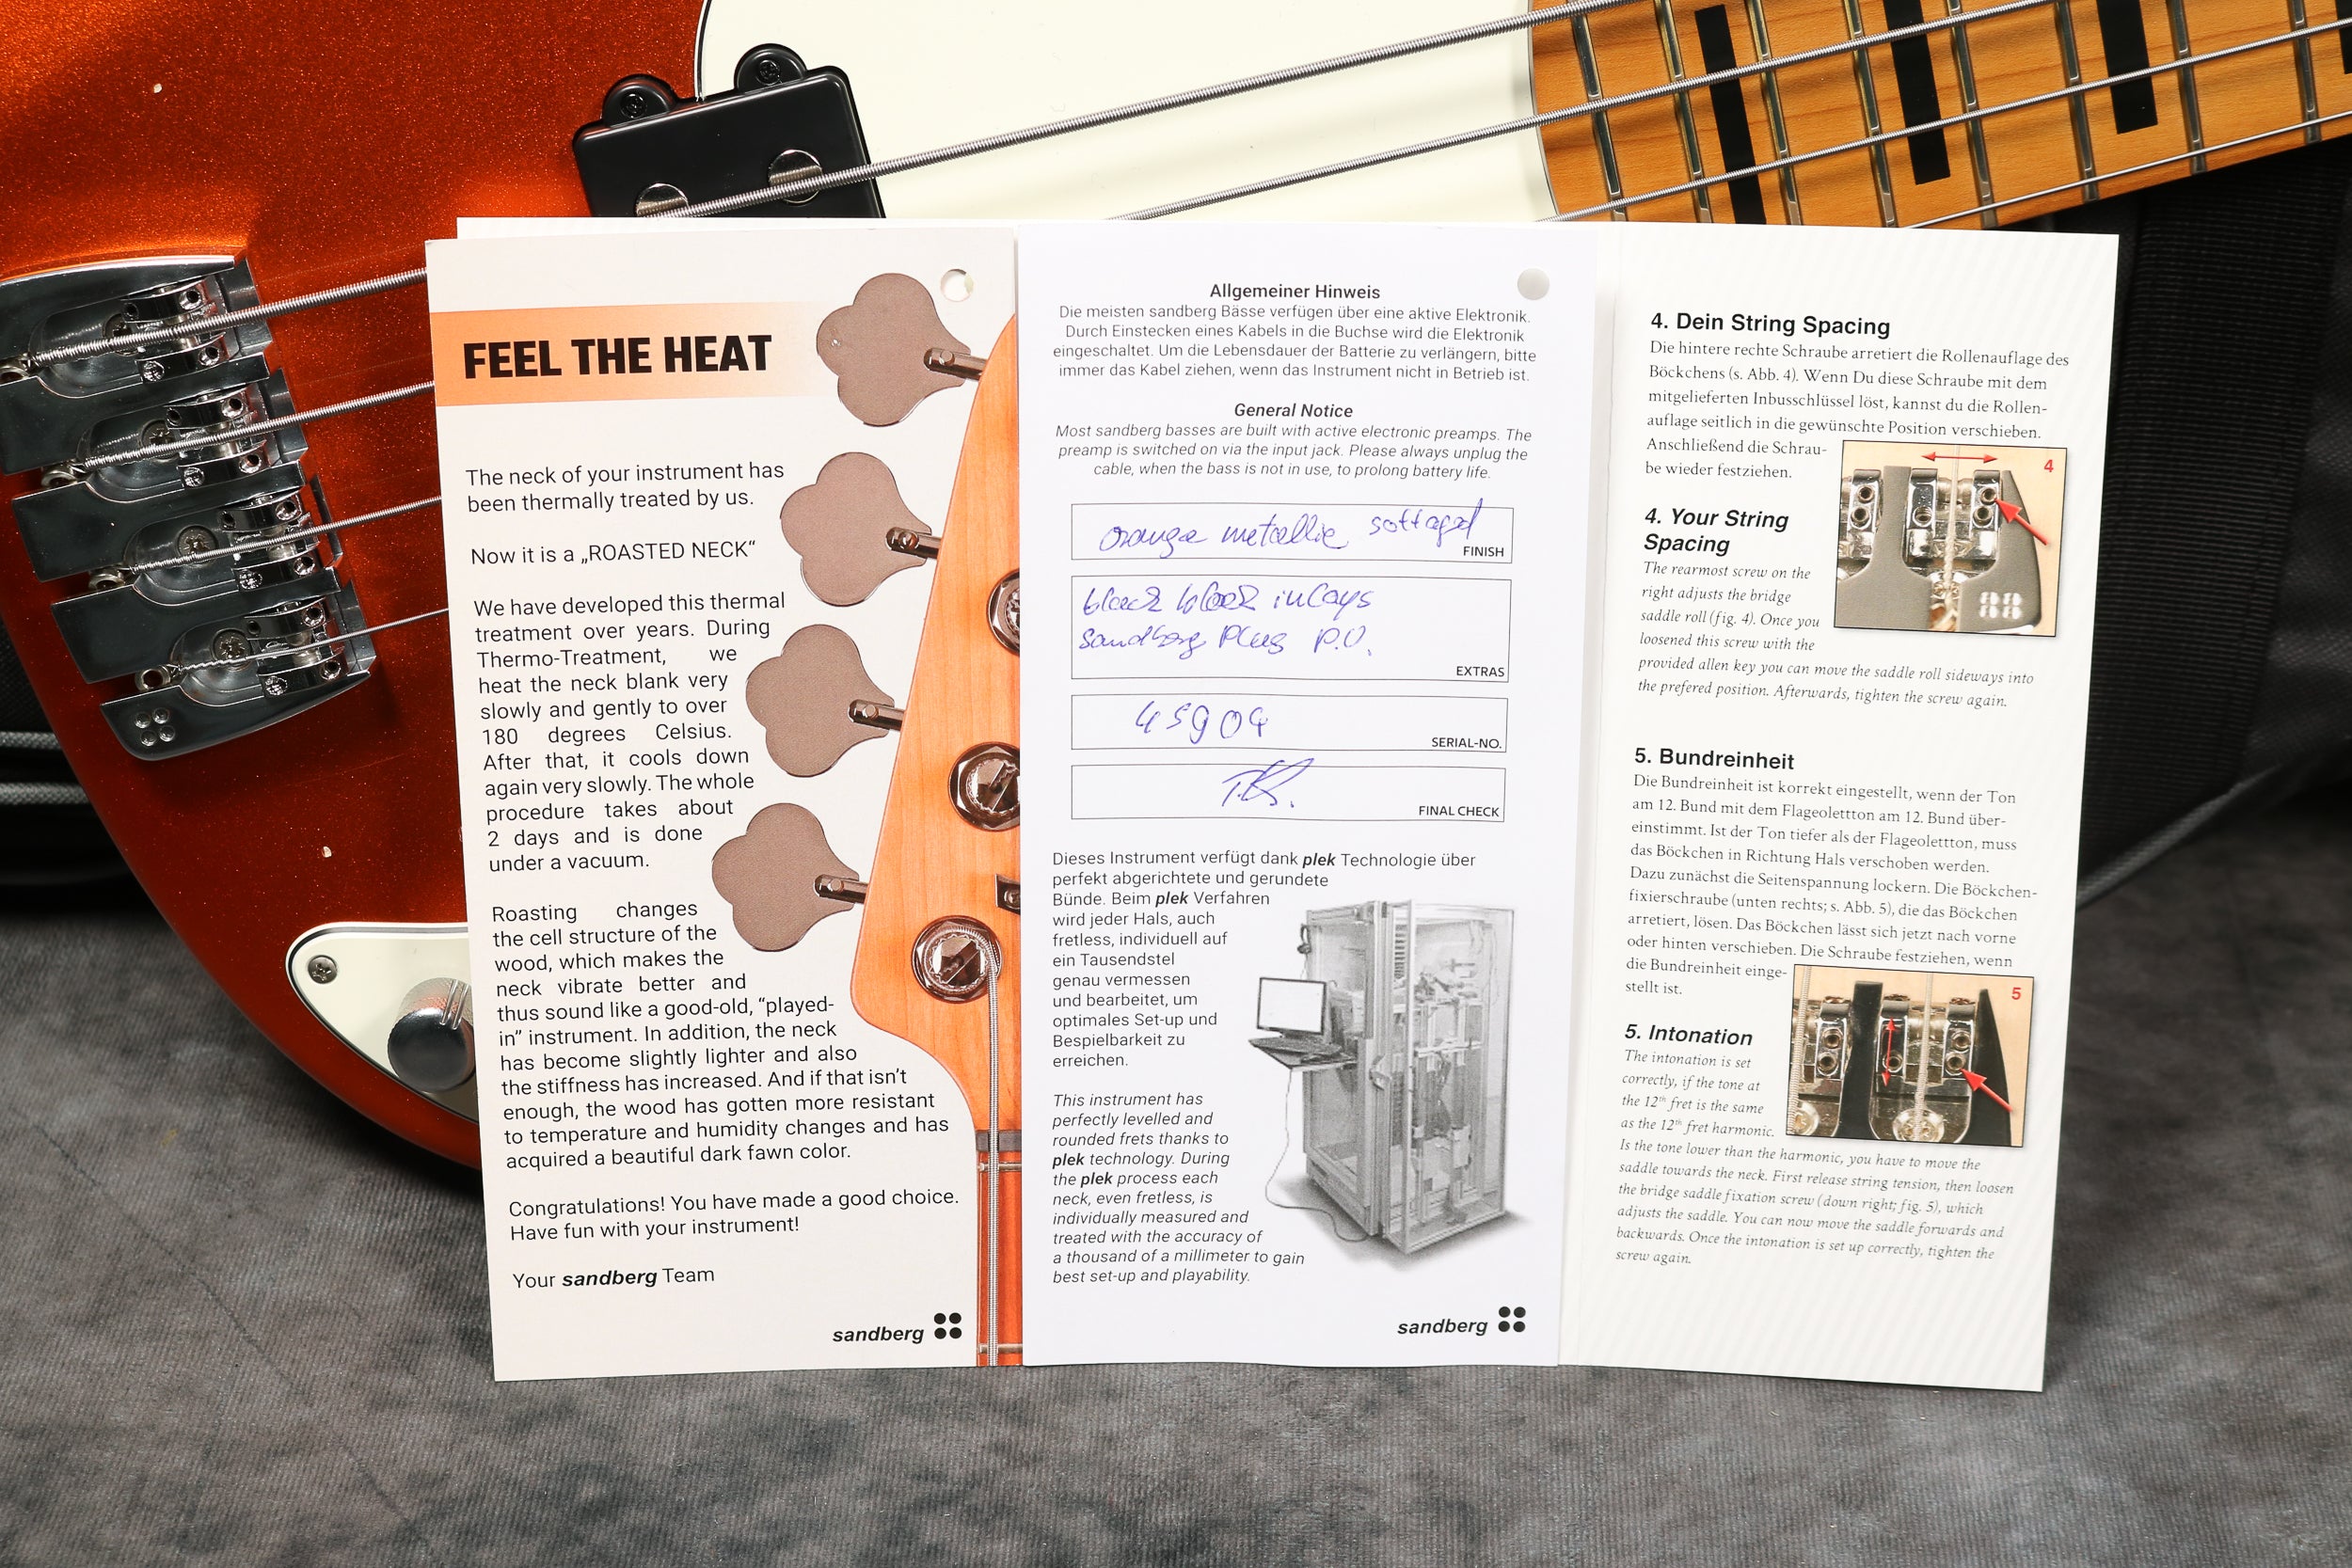 FEEL THE HEAT
The neck of your instrument has
been thermally treated by us.
Now it is a „ROASTED NECK“
We have developed this thermal
treatment over years. During
Thermo-Treatment, we
heat the neck blank very
slowly and gently to over
180 degrees Celsius.
After that, it cools down
again very slowly. The whole
procedure takes about
2 days and is done
under a vacuum.
Roasting changes
the cell structure of the
wood, which makes the
neck vibrate better and
thus sound like a good-old, “played-
in” instrument. In addition, the neck
has become slightly lighter and also
the stiffness has increased. And if that isn’t
enough, the wood has gotten more resistant
to temperature and humidity changes and has
acquired a beautiful dark fawn color.
Congratulations! You have made a good choice.
Have fun with your instrument!
Your sandberg Team
sandberg
Allgemeiner Hinweis
Die meisten sandberg Bässe verfügen über eine aktive Elektronik.
Durch Einstecken eines Kabels in die Buchse wird die Elektronik
eingeschaltet. Um die Lebensdauer der Batterie zu verlängern, bitte
immer das Kabel ziehen, wenn das Instrument nicht in Betrieb ist.
General Notice
Most sandberg basses are built with active electronic preamps. The
preamp is switched on via the input jack. Please always unplug the
cable, when the bass is not in use, to prolong battery life.
orange metallic softaged
FINISH
black block inlays
sandberg Plus P.U.
EXTRAS
45904
SERIAL-NO.
FINAL CHECK
Dieses Instrument verfügt dank plek Technologie über
perfekt abgerichtete und gerundete
Bünde. Beim plek Verfahren
wird jeder Hals, auch
fretless, individuell auf
ein Tausendstel
genau vermessen
und bearbeitet, um
optimales Set-up und
Bespielbarkeit zu
erreichen.
This instrument has
perfectly levelled and
rounded frets thanks to
plek technology. During
the plek process each
neck, even fretless, is
individually measured and
treated with the accuracy of
a thousand of a millimeter to gain
best set-up and playability.
sandberg
4. Dein String Spacing
Die hintere rechte Schraube arretiert die Rollenauflage des
Böckchens (s. Abb. 4). Wenn Du diese Schraube mit dem
mitgelieferten Inbusschlüssel löst, kannst du die Rollen-
auflage seitlich in die gewünschte Position verschieben.
Anschließend die Schrau-
be wieder festziehen.
4
4. Your String
Spacing
The rearmost screw on the
right adjusts the bridge
saddle roll (fig. 4). Once you
loosened this screw with the
provided allen key you can move the saddle roll sideways into
the prefered position. Afterwards, tighten the screw again.
5. Bundreinheit
Die Bundreinheit ist korrekt eingestellt, wenn der Ton
am 12. Bund mit dem Flageolettton am 12. Bund über-
einstimmt. Ist der Ton tiefer als der Flageolettton, muss
das Böckchen in Richtung Hals verschoben werden.
Dazu zunächst die Seitenspannung lockern. Die Böckchen-
fixierschraube (unten rechts; s. Abb. 5), die das Böckchen
arretiert, lösen. Das Böckchen lässt sich jetzt nach vorne
oder hinten verschieben. Die Schraube festziehen, wenn
die Bundreinheit einge-
stellt ist.
5
5. Intonation
The intonation is set
correctly, if the tone at
the 12th fret is the same
as the 12th fret harmonic.
Is the tone lower than the harmonic, you have to move the
saddle towards the neck. First release string tension, then loosen
the bridge saddle fixation screw (down right; fig. 5), which
adjusts the saddle. You can now move the saddle forwards and
backwards. Once the intonation is set up correctly, tighten the
screw again.